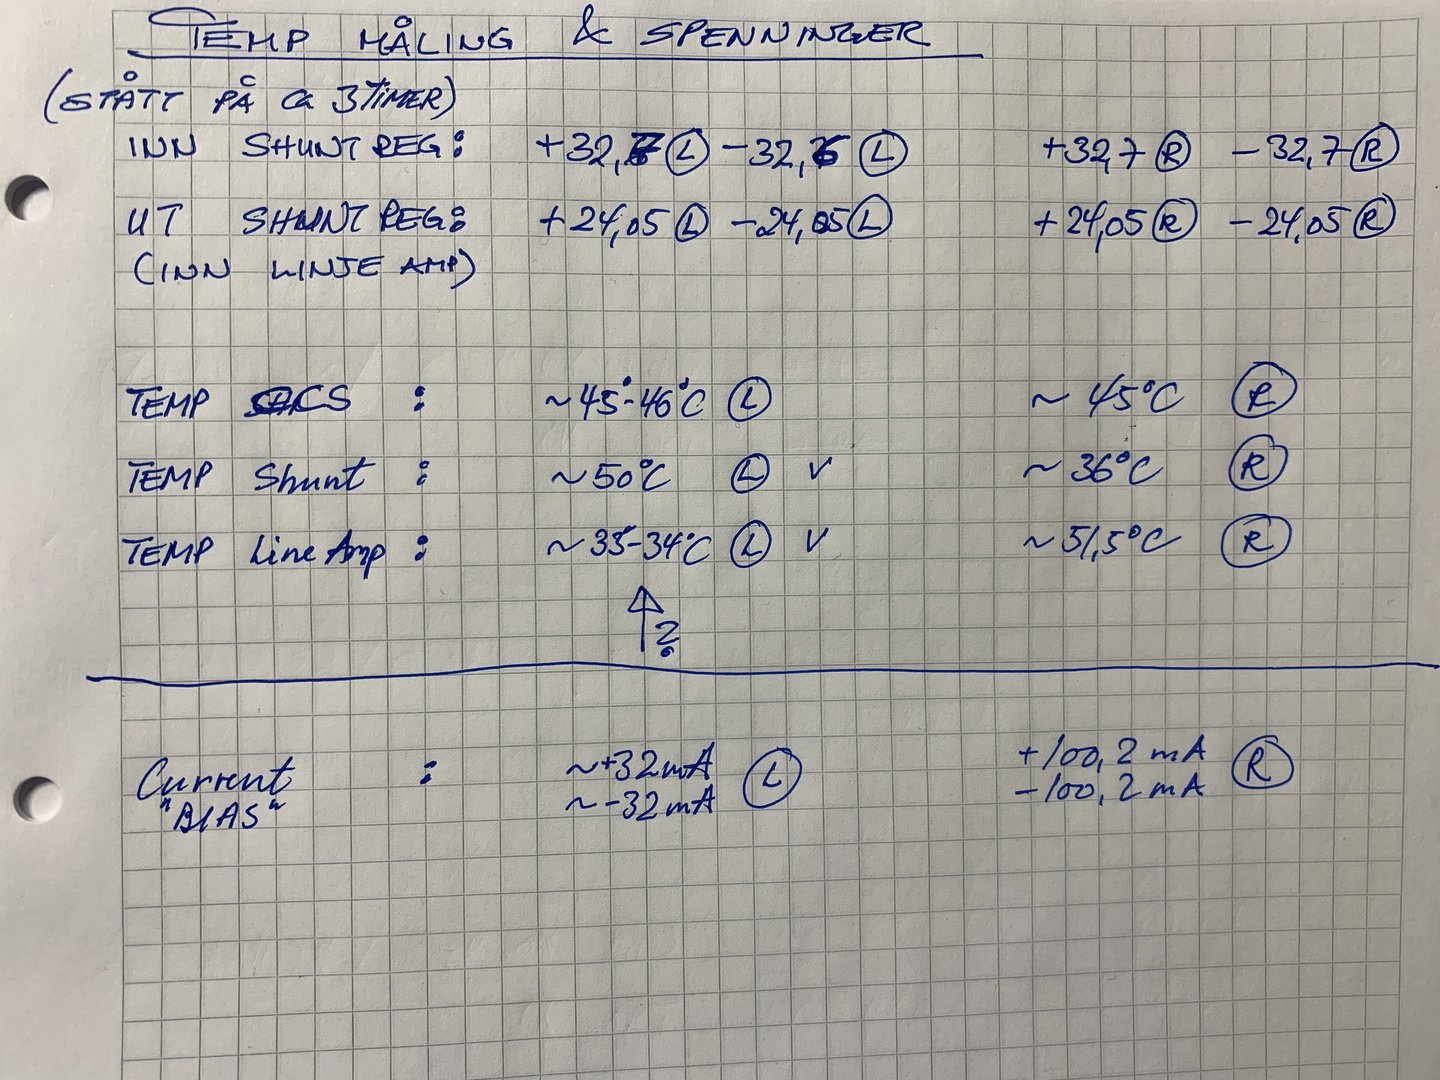 TEMP MÅLING & SPENNINGER
(STÅTT PÅ ca 3 TIMER)
INN SHUNT REG: +32,7 (L) -32,6 (L) +32,7 (R) -32,7 (R)
UT SHUNT REG: +24,05 (L) -24,05 (L) +24,05 (R) -24,05 (R)
(INN LINJE AMP)
TEMP CCS : ~45°-46°C (L) ~45°C (R)
TEMP Shunt : ~50°C (L) v ~36°C (R)
TEMP Line Amp : ~35-34°C (L) v ~51,5°C (R)
?
Current : ~+32mA (L) +100,2 mA (R)
"BIAS" ~-32mA -100,2 mA